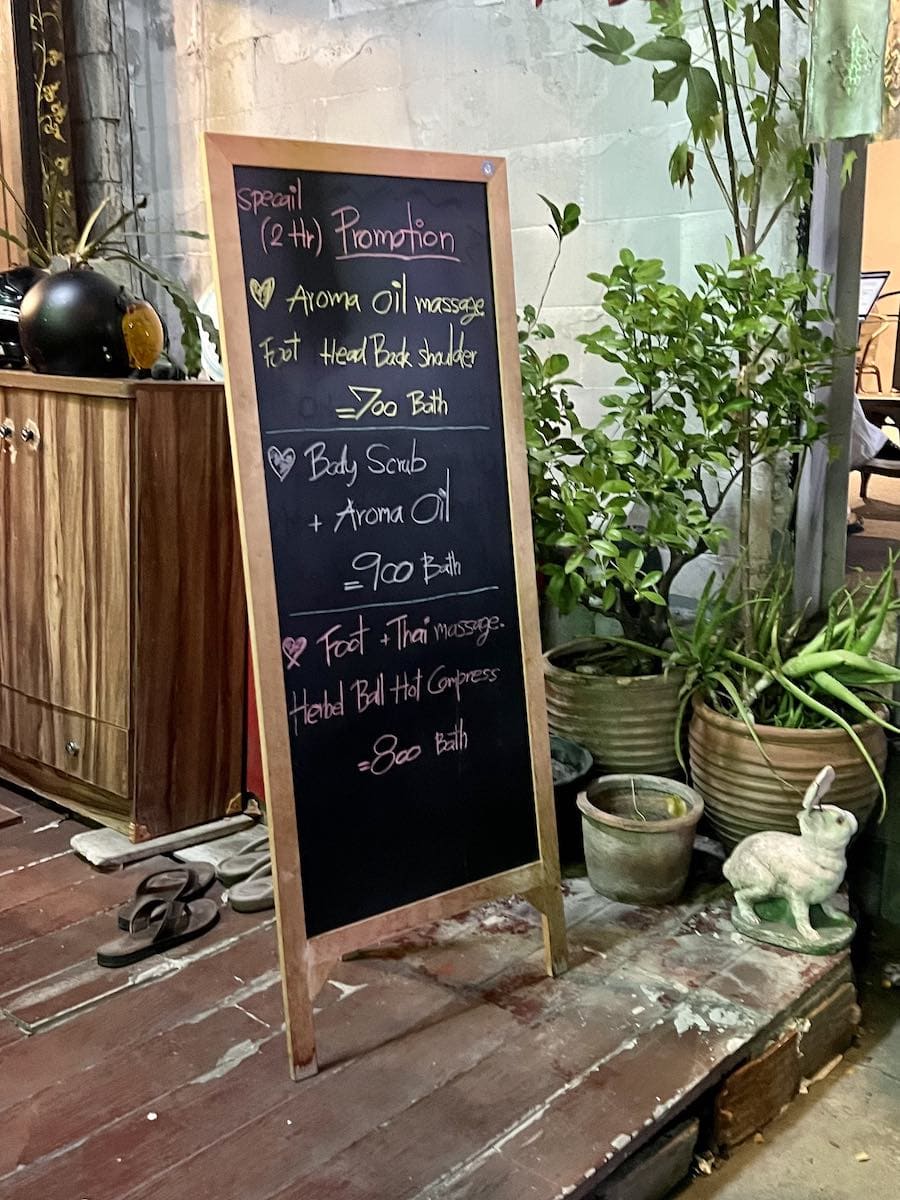 specail
(2 Hr) Promotion
Aroma Oil massage
Foot Head Back shoulder
=700 Bath
Body Scrub
+ Aroma Oil
=900 Bath
Foot +Thai massage.
Herbel Ball Hot Compress
=800 Bath